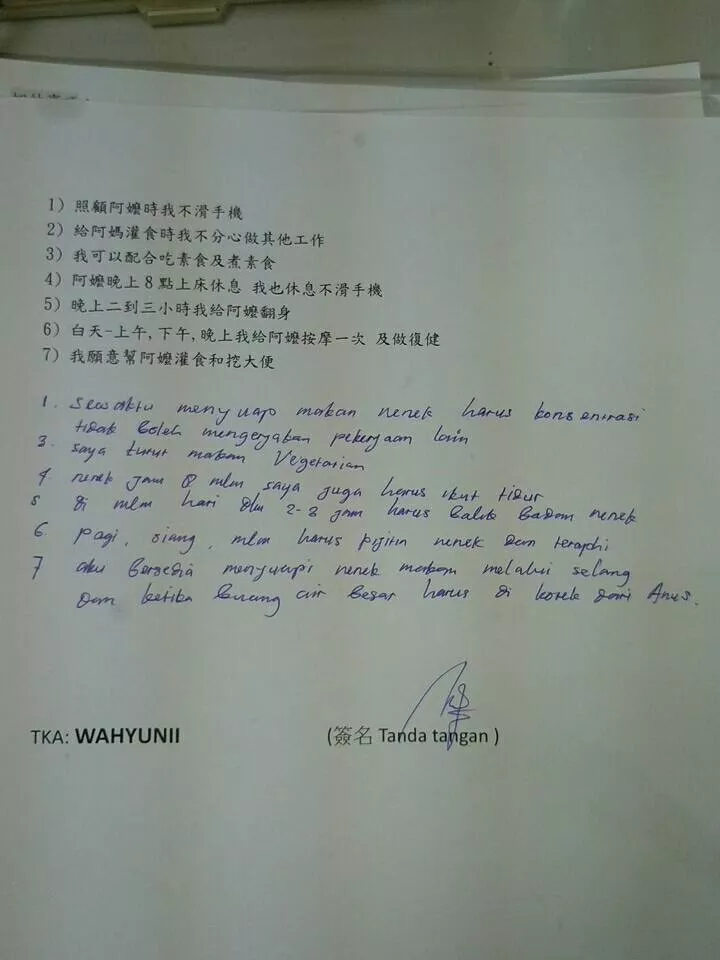 1) 照顧阿嬤時我不滑手機
2) 給阿媽灌食時我不分心做其他工作
3) 我可以配合吃素食及煮素食
4) 阿嬤晚上 8 點上床休息 我也休息不滑手機
5) 晚上二到三小時我給阿嬤翻身
6) 白天-上午,下午,晚上我給阿嬤按摩一次 及做復健
7) 我願意幫阿嬤灌食和挖大便
1. Sewaktu menyuap makan nenek harus konsentrasi
tidak boleh mengerjakan pekerjaan lain
3. saya turut makan Vegetarian
4 nenek jam 8 mlm saya juga harus ikut tidur
5 di mlm hari dlm 2-3 jam harus balik badan nenek
6. pagi, siang, mlm harus pijitin nenek dan teraphi
7 aku bersedia menyuapi nenek makan melalui selang
dan ketika buang air besar harus di korek dari Anus.
TKA: WAHYUNII
(簽名 Tanda tangan )